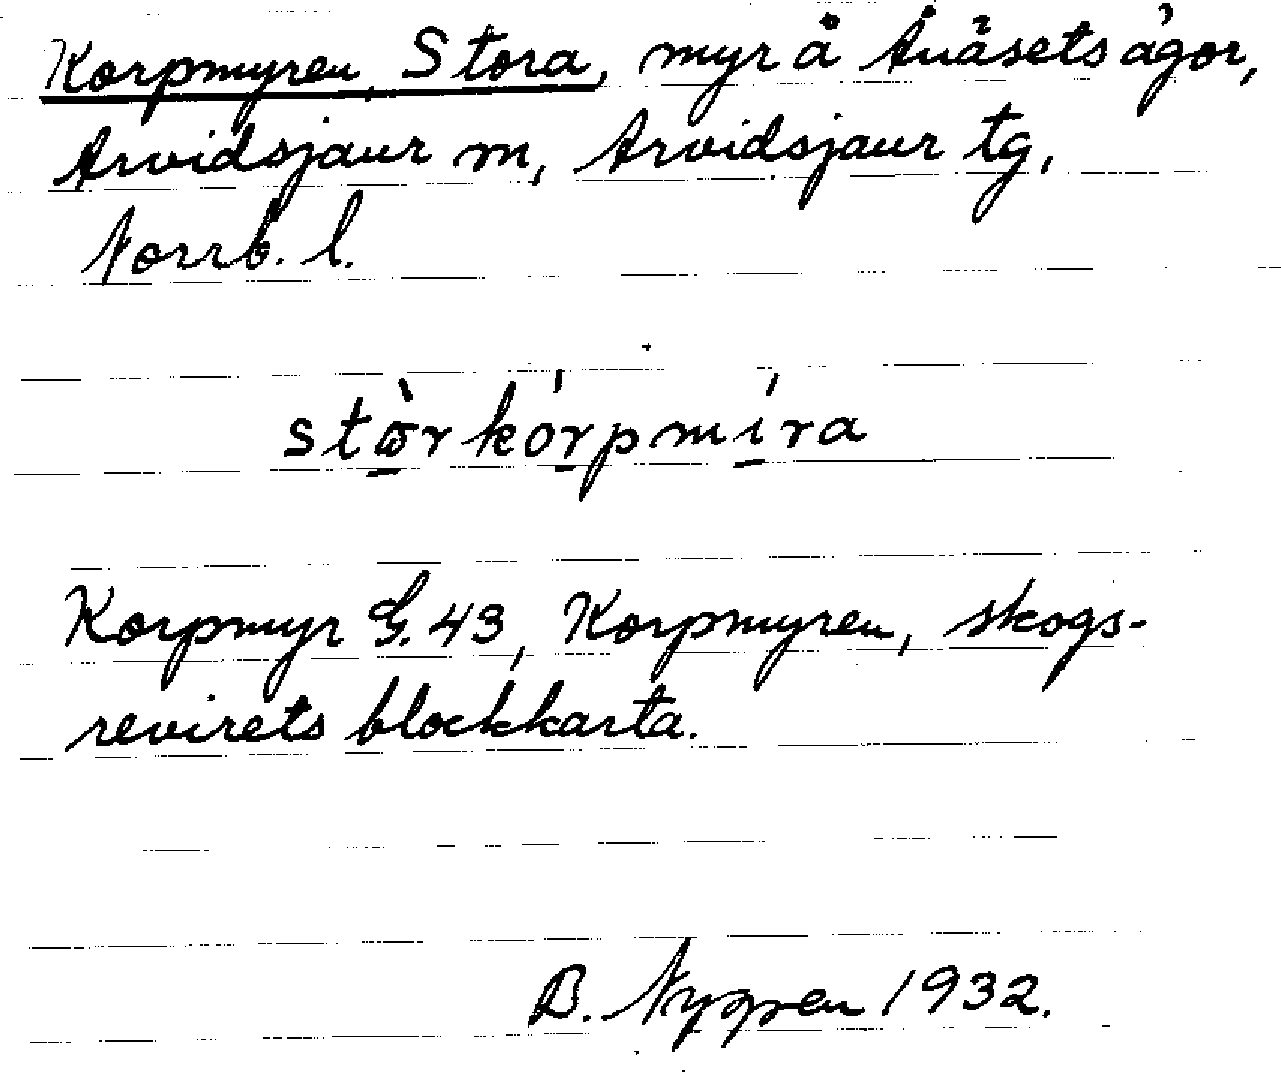 Korpmyren, Stora, myr å Ånäsets ägor,
Arvidsjaur m, Arvidsjaur tg,
Norrb. l.
stòrkórpmíra
Korpmyr G. 43, Korpmyren, skogs-
revirets blockkarta.
B. Nygren 1932.